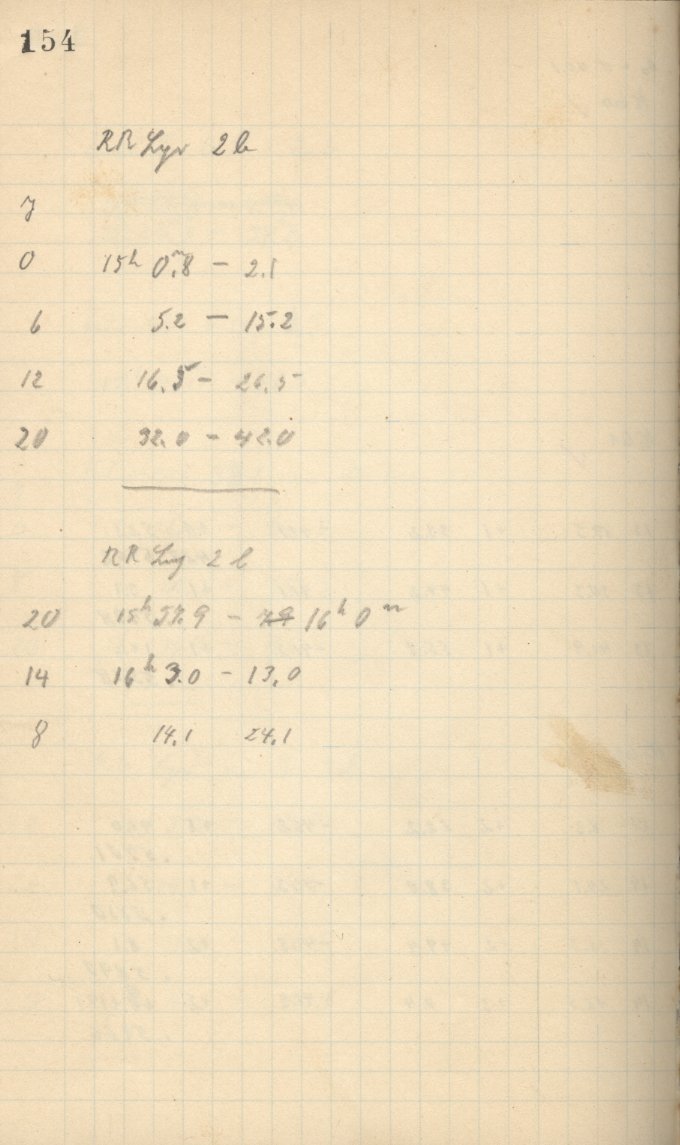 154
RR Lyr 2b
7
0 15h 0m.8 – 2.1
6 5.2 – 15.2
12 16.5 – 26.5
20 32.0 – 42.0
RR Lyr 2b
20 15h 57.9 – 16h 0m
14 16h 3.0 – 13.0
8 14.1 24.1